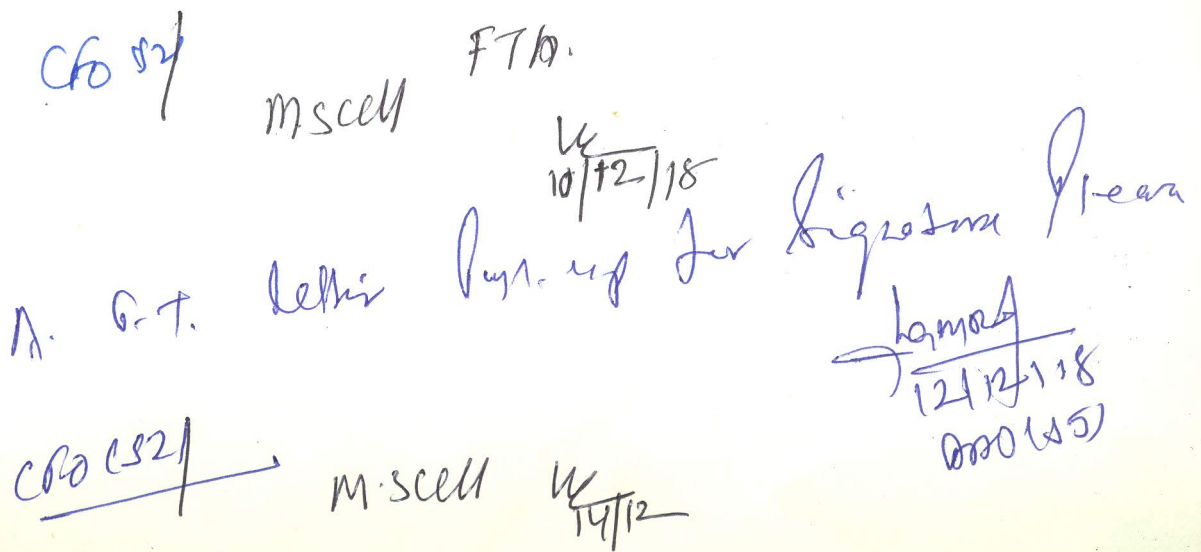 CFO S2/
FTA.
M.SCell
10/12/18
A. G.T. letter Put-up for Signature Please
12/12/18
(S5)
CRO (S2)
M.SCell
14/12